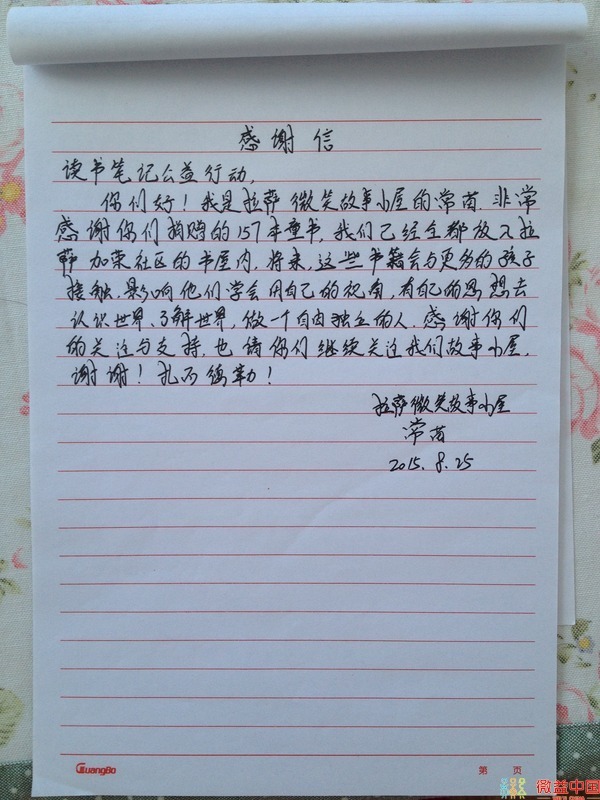 感谢信
读书笔记公益行动,
你们好！我是拉萨微笑故事小屋的常茵.非常
感谢你们捐赠的157本童书,我们已经全部放入拉
萨加荣社区的书屋内.将来,这些书籍会与更多的孩子
接触.影响他们学会用自己的视角,有自己的思想去
认识世界、了解世界,做一个自由独立的人.感谢你们
的关注与支持.也请你们继续关注我们故事小屋.
谢谢！扎西德勒！
拉萨微笑故事小屋
常茵
2015.8.25
GuangBo
第 页
微益中国